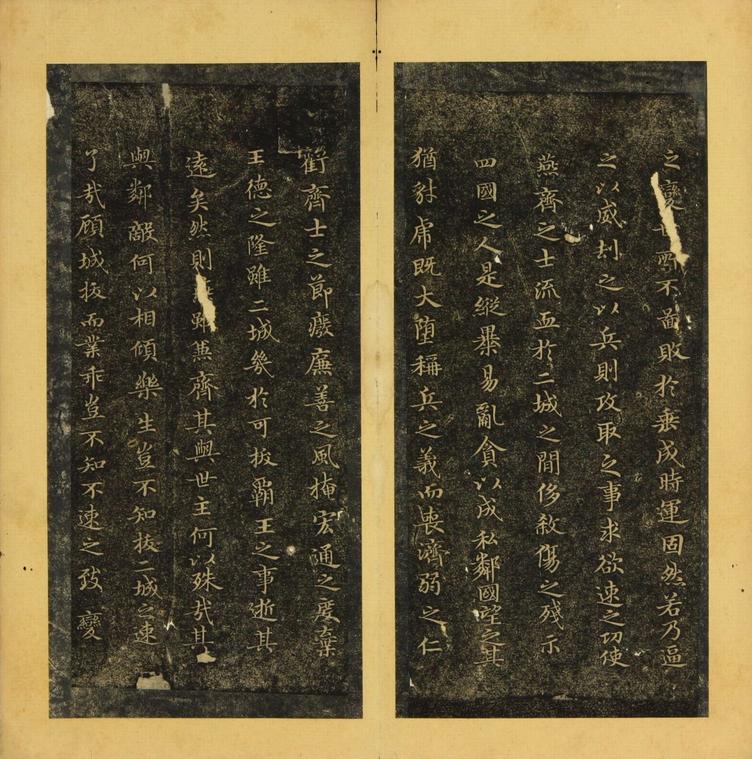 之變所不圖敗於垂成時運固然若乃逼
之以威劫之以兵則攻取之事求欲速之功使
燕齊之士流血於二城之間侈殺傷之殘示
四國之人是縱暴易亂貪以成私鄰國望之其
猶豺虎既大墮稱兵之義而喪濟弱之仁
虧齊士之節廢廉善之風掩宏通之度棄
王德之隆雖二城幾於可拔霸王之事逝其
遠矣然則燕雖兼齊其與世主何以殊哉其
與鄰敵何以相傾樂生豈不知拔二城之速
了哉顧城拔而業乖豈不知不速之致變